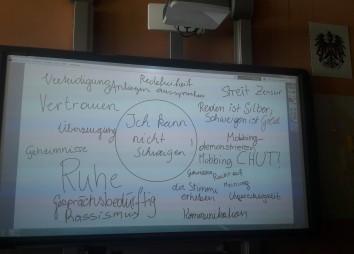 Verteidigung
Redefreiheit
Anliegen aussprechen
Streit Zensur
Vertrauen
Reden ist Silber,
Schweigen ist Gold
Überzeugung
Ich kann
nicht
schweigen!
Geheimnisse
Mobbing
demonstrieren
Mobbing CHUT!
Ruhe
Recht auf
Meinung
die Stimme
erheben
gesprächsbedürftig
Rassismus
Kommunikation